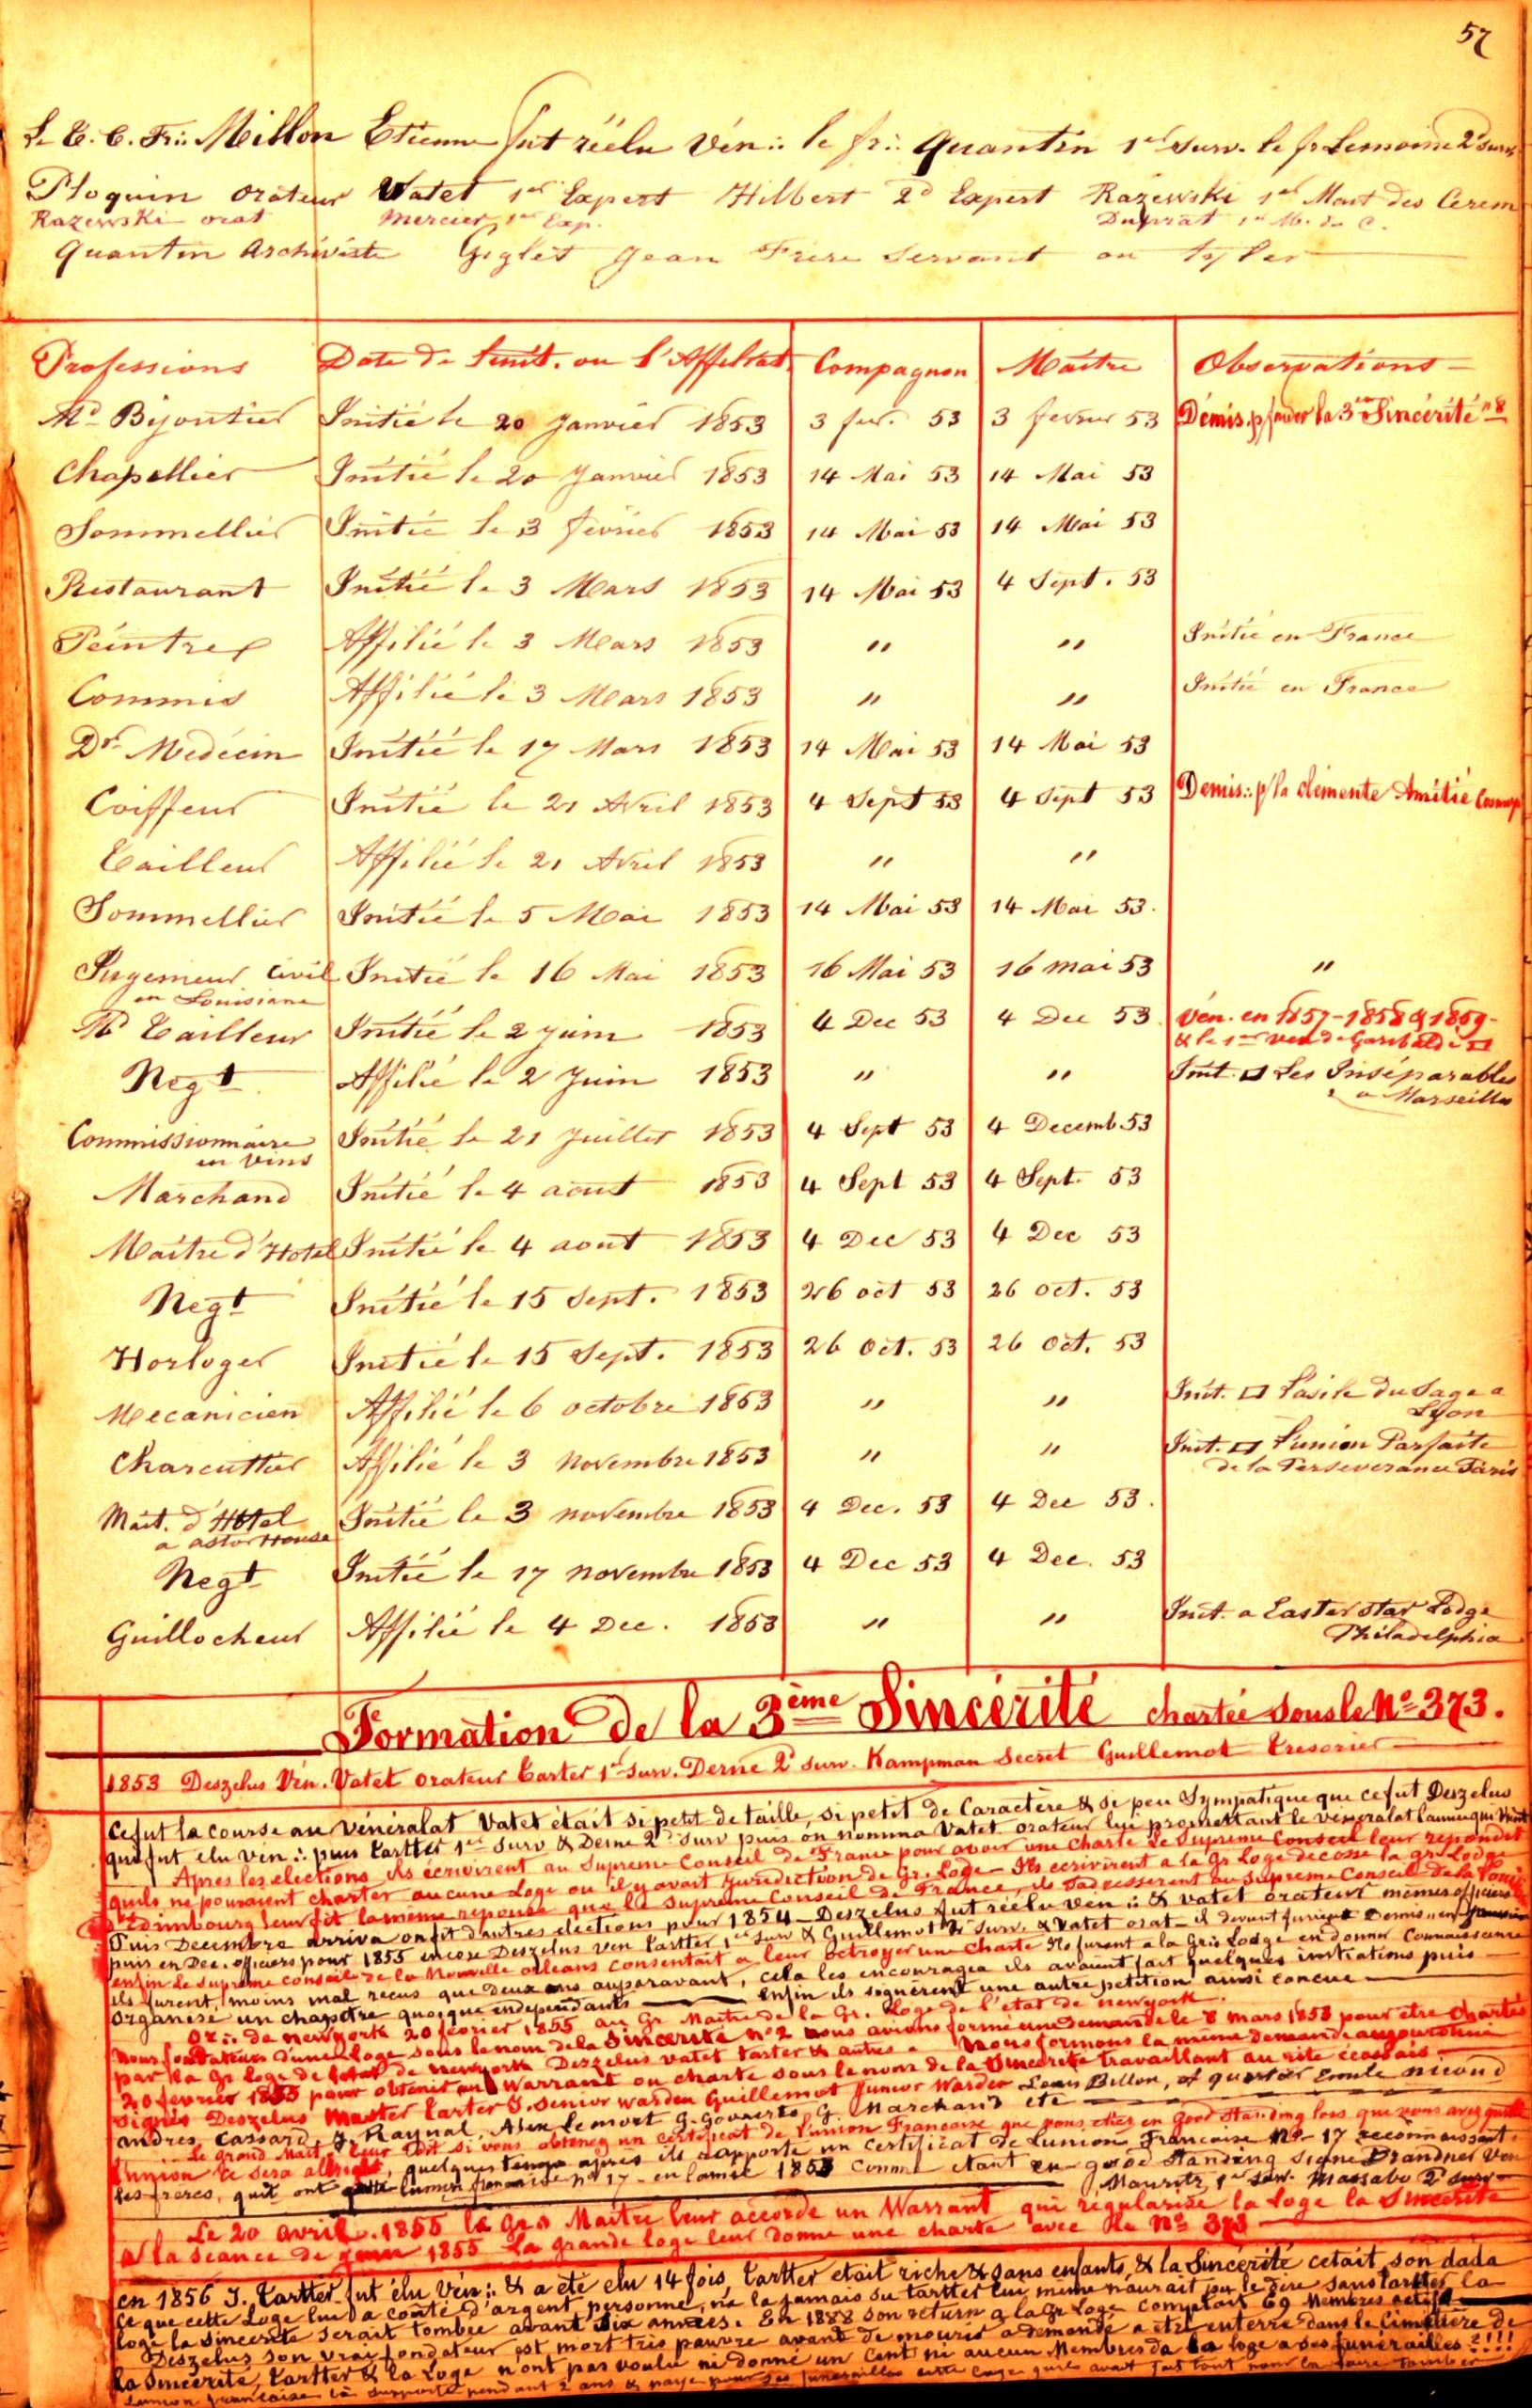 57
Le T. C. Fr∴ Millon Etienne fut réélu Vén∴ le fr∴ Quantin 1er Surv. le fr Lemoine 2d Surv
Ploquin Orateur Vatet 1er Expert Hilbert 2d Expert Razewski 1er Mait des Cerem
Razewski orat Mercier 1er Exp. Duprat 1er M. de C.
Quantin Archiviste Giglet Jean Frère Servant ou tyler
Professions Date de l'init. ou l'Affiliat. Compagnon Maitre Observations
Md Bijoutier Initié le 20 Janvier 1853 3 fev. 53 3 fevrier 53 Démis. p/ fonder la 3em Sincérité
Chapellier Initié le 20 Janvier 1853 14 Mai 53 14 Mai 53
Sommellier Initié le 3 février 1853 14 Mai 53 14 Mai 53
Restaurant Initié le 3 Mars 1853 14 Mai 53 4 Sept. 53
Peintre Affilié le 3 Mars 1853 " " Initié en France
Commis Affilié le 3 Mars 1853 " " Initié en France
Dr Medecin Initié le 17 Mars 1853 14 Mai 53 14 Mai 53
Coiffeur Initié le 21 Avril 1853 4 Sept 53 4 Sept 53 Demis∴ p/ la clémente Amitié Cosmop
Tailleur Affilié le 21 Avril 1853 " "
Sommellier Initié le 5 Mai 1853 14 Mai 53 14 Mai 53.
Ingenieur Civil Initié le 16 Mai 1853 16 Mai 53 16 mai 53 "
en Louisiane
Md Tailleur Initié le 2 Juin 1853 4 Dec 53 4 Dec 53 Vén. en 1857-1858 & 1859-
& le 1er Ven de Garibaldi □
Negt Affilié le 2 Juin 1853 " " Init. □ Les Inséparables
a Marseille
Commissionnaire Initié le 21 Juillet 1853 4 Sept 53 4 Decemb 53
en vins
Marchand Initié le 4 aout 1853 4 Sept 53 4 Sept. 53
Maitre d'Hotel Initié le 4 aout 1853 4 Dec 53 4 Dec 53
Negt Initié le 15 Sept. 1853 26 oct 53 26 oct. 53
Horloger Initié le 15 Sept. 1853 26 Oct. 53 26 Oct. 53
Mecanicien Affilié le 6 octobre 1853 " " Init. □ l'asile du Sage a
Lyon
Charcuttier Affilié le 3 novembre 1853 " " Init. □ l'union Parfaite
de la Perseverance Paris
Mait. d'Hotel Initié le 3 novembre 1853 4 Dec. 53 4 Dec 53.
a astor House
Negt Initié le 17 novembre 1853 4 Dec 53 4 Dec. 53
Guillocheur Affilié le 4 Dec. 1853 " " Init. a Easter Star Lodge
Philadelphia
Formation de la 3ème Sincérité chartée sous le No 373.
1853 Deszelus Vén. Vatet orateur Tarter 1er Surv. Derne 2d surv. Kampman Secret Guillemot Tresorier
Ce fut la course au vénéralat Vatet était si petit de taille, si petit de Caractère & si peu Sympatique que ce fut Deszelus
qui fut élu ven∴ puis Tartter 1er Surv & Derne 2d Surv puis on nomma Vatet orateur lui promettant le véneralat l'année qui vient
Apres les elections ils écrivirent au Supreme Conseil de France pour avoir une Charte Le Supreme Conseil leur repondit
quils ne pouvaient charter aucune Loge ou il y avait Juridiction de Gr. Loge - Ils ecrivirent a la Gr Loge decosse la gr Lodge
d'Edimbourg leur fit la meme reponse que le Supreme Conseil de France, ils sadresserent au Supreme Conseil de la
Puis Decembre arriva on fit dautres elections pour 1854 - Deszelus fut réélu ven∴ & Vatet orateur mêmes officiers
puis en Dec. officiers pour 1855 encore Deszelus ven Tartter 1er Surv & Guillemot 2d Surv. & Vatet orat - il devint furieux Demis∴
enfin le Supreme conseil de la Nouvelle orleans consentait a leur octroyer une Charte Ils furent a la Gr Lodge en donner Connaissance
ils furent moins mal recus que deux ans auparavant, cela les encouragea ils avaient fait quelques initiations puis
organise un chapitre quoique independants enfin ils signèrent une autre petition ainsi concue
Or∴ de new york 20 fevrier 1855 au Gr Maitre de la Gr. Loge de l'etat de new york.
Nous fondateurs d'une loge sous le nom de la Sincerité no 2 nous avions formé une demande le 8 mars 1853 pour etre chartés
par la Gr Loge de l'etat de new york Deszelus vatet tarter & autres. Nous formons la meme demande aujourdhui
20 fevrier 1855 pour obtenir un Warrant ou charte sous le nom de la Sincerite travaillant au rite écossais
Signés Deszelus Master Tarter J. Senior Warden Guillemot Junior Warden Louis Billon,
andres Cassard, J. Raynal, Alex Lemort G. Govaerts G. Marchand etc
Le grand Mait leur dit si vous obtenez un certificat de l'union Francaise que vous etiez en good standing lors que vous avez quitté
l'union ce sera allright, quelques temps apres ils rapporte un certificat de Lunion Francaise No 17 reconnaissant
les frères quil ont quitté lunion francaise no 17 en l'année 1853 comme etant en good standing signé Brandner Ven
Mauritz 1er Surv. Massabo 2d surv.
Le 20 avril 1855 le gr∴ Maitre leur accorde un Warrant qui regularise la Loge la Sincerité
a la seance de Juin 1855 la grande loge leur donne une charte avec le No 373
en 1856 J. Tartter fut élu Vén∴ & a ete elu 14 fois, Tartter etait riche & sans enfants, & la Sincérité cetait son dada
Ce que cette Loge lui a couté d'argent personne ne la jamais su tartter lui même n'aurait pu le dire sans tartter la
loge la Sincerité serait tombée avant dix années. En 1888 son return a la gr Loge comptait 69 Membres actifs
Deszelus son vrai fondateur est mort tres pauvre avant de mourir a demandé a etre enterré dans le Cimetière de
la Sincerité, Tartter & la Loge n'ont pas voulu ni donné un cent ni aucun Membres de la loge a ses funerailles?!!!
Lunion francaise la supporté pendant 2 ans & payé pour ses funerailles cette Loge quil avait fait tout pour la faire tomber